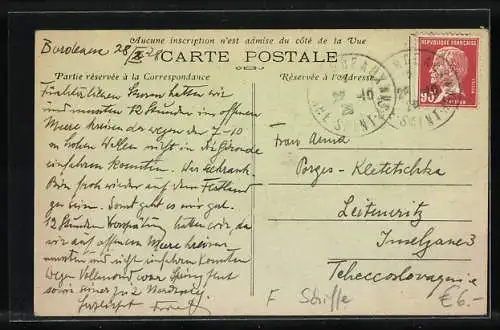 Aucune inscription n'est admise du côté de la Vue
Bordeaux 28/X 28
CARTE POSTALE
Partie réservée à la Correspondance
Réservée à l'Adresse
hatten wir
und mussten 12 Stunden im offenen
Meere kreisen da wegen der 7-10
m hohen Wellen nicht in die Gironde
einfahren konnten. War seekrank.
Bin froh wieder auf dem Festland
zu sein. Sonst geht es mir gut.
12 Stunden Verspätung hatten wir, da
wir auf offenem Meere kreisen
mussten und nicht einfahren konnten
wegen Vollmond war Springflut
sowie einer
herzlichst
Frau Anna
Porges-Kletetschka
Leitmeritz
Inselgasse 3
Tchecoslovaquie
F Schiffe
€6.-
REPUBLIQUE FRANÇAISE